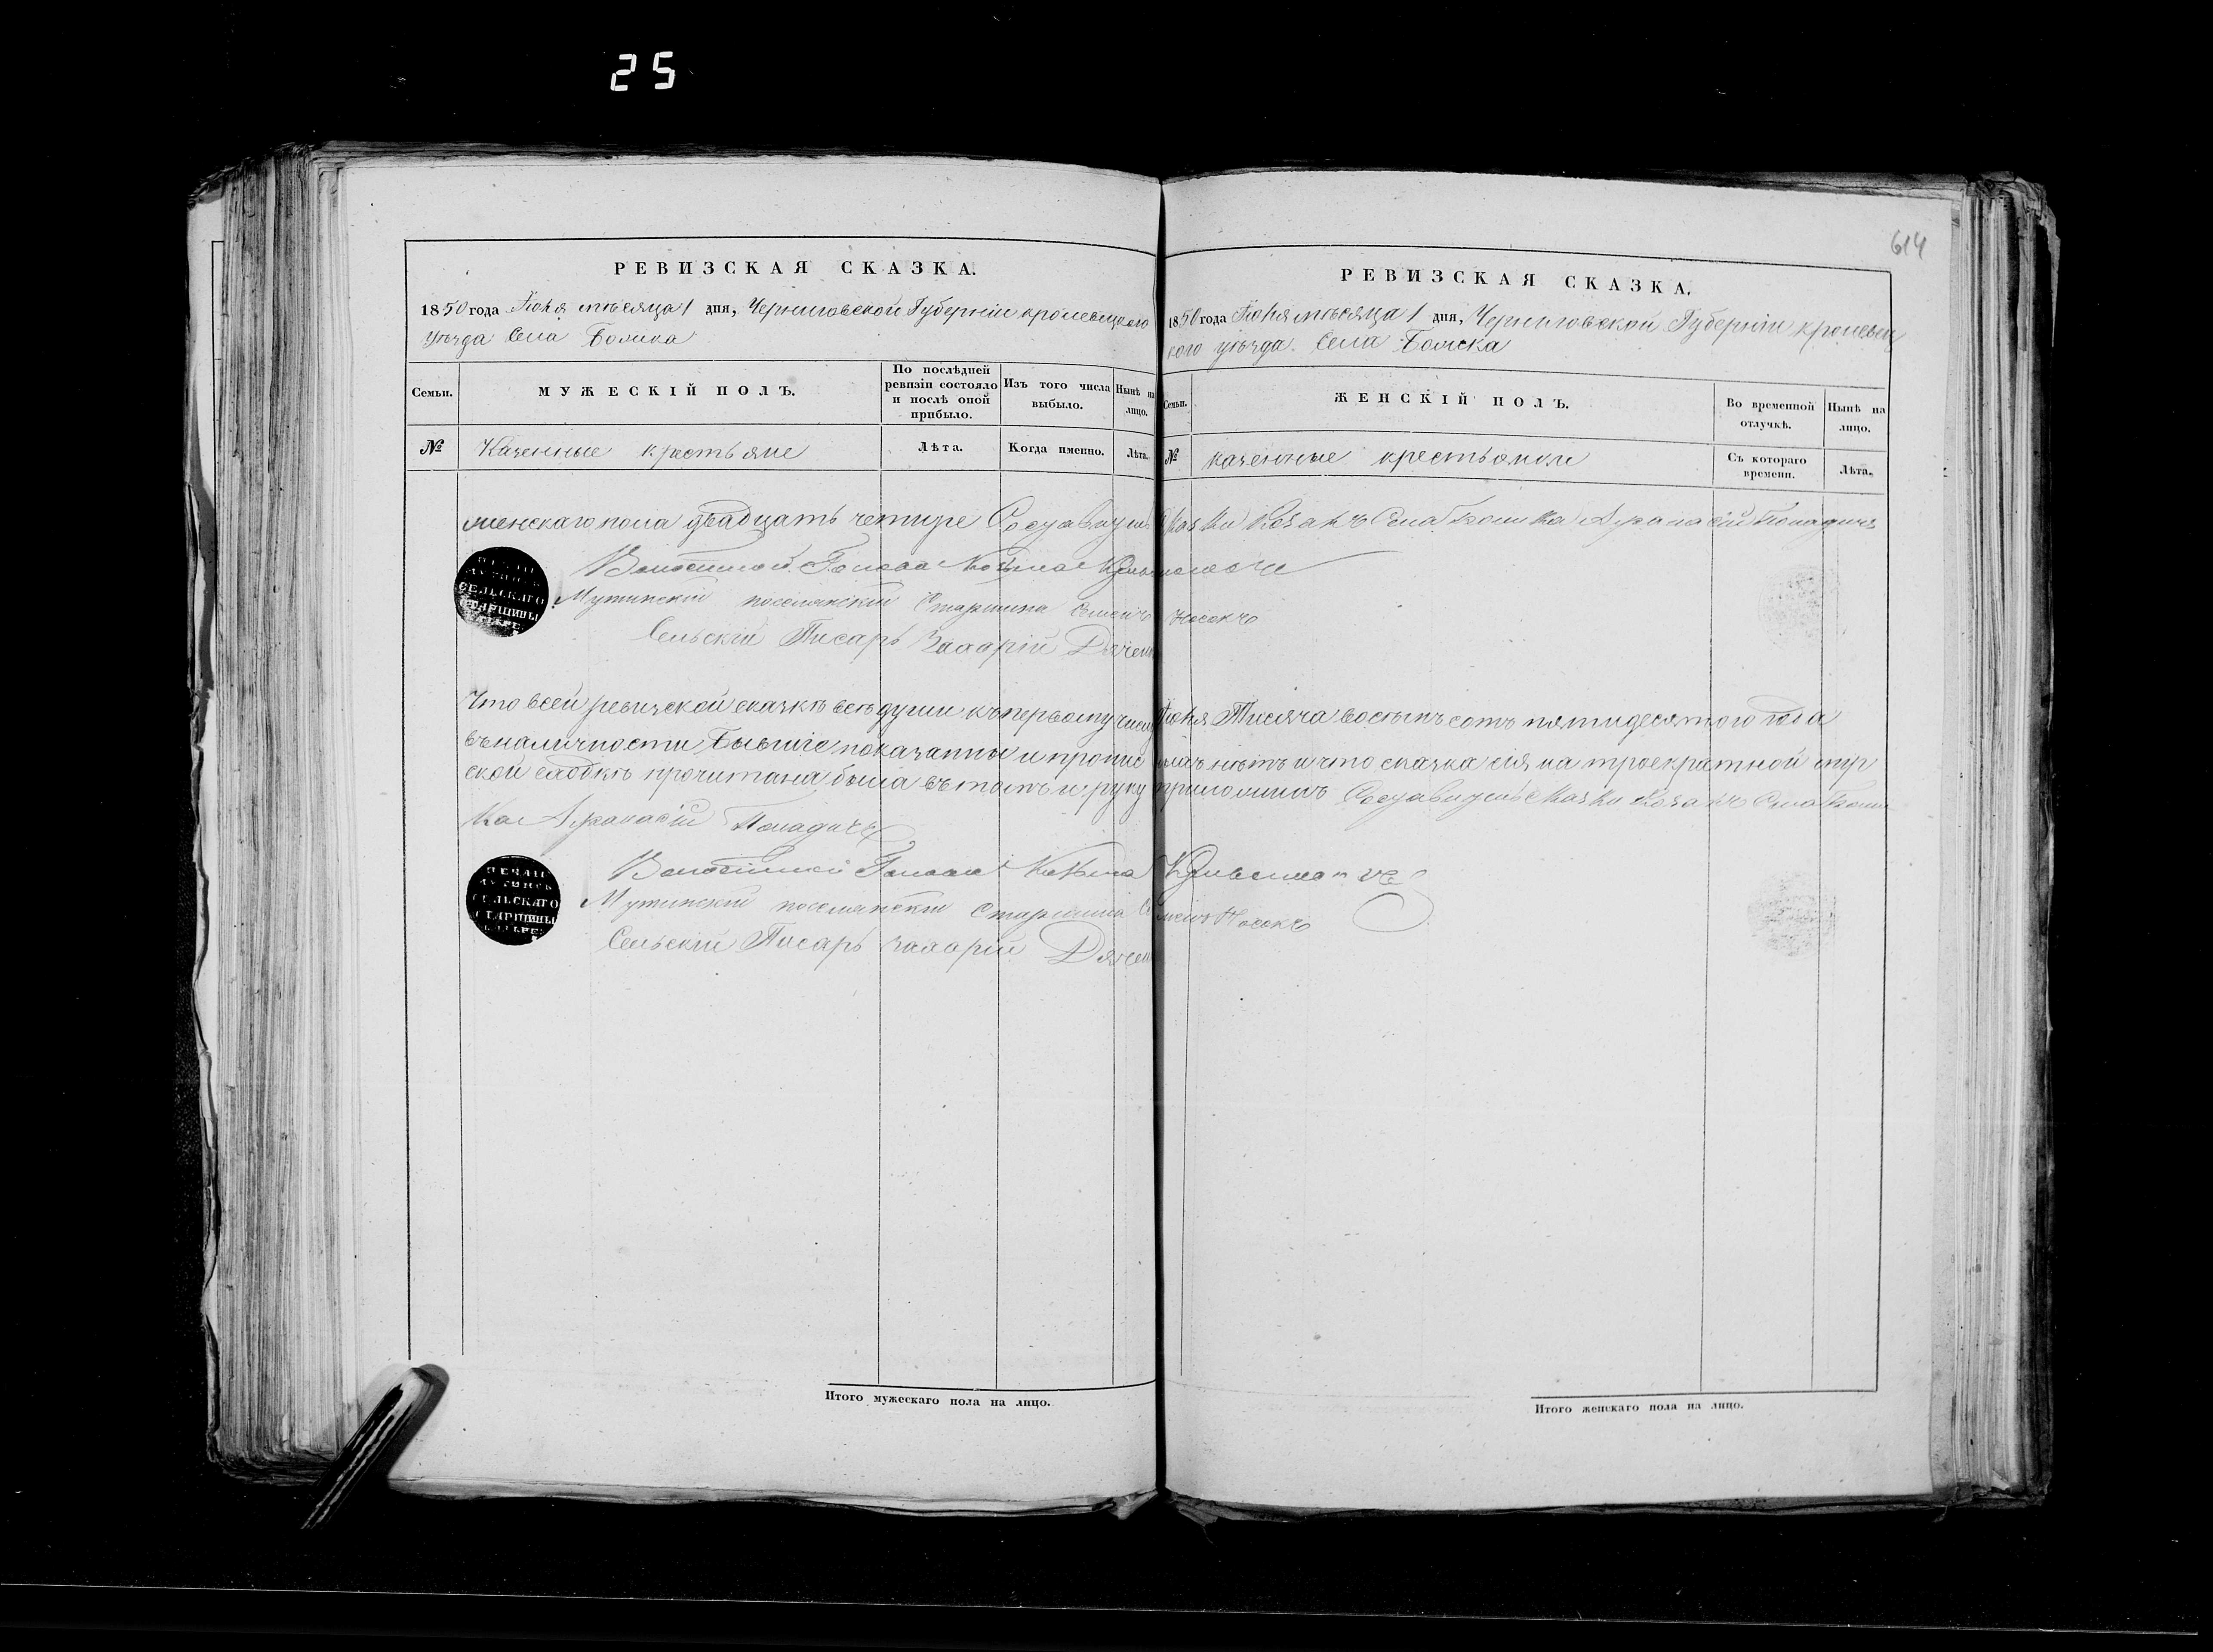 25
614
РЕВИЗСКАЯ СКАЗКА.
1850 года Іюня мѣсяца 1 дня, Черниговской Губерніи кролевецкого
уѣзда Села Божка
Семьи.
МУЖЕСКІЙ ПОЛЪ.
По послѣдней ревизіи состояло и послѣ оной прибыло.
Изъ того числа выбыло.
Нынѣ на лицо.
№
Казенные крестьяне
Лѣта.
Когда именно.
Лѣта.
РЕВИЗСКАЯ СКАЗКА.
1850 года Іюня мѣсяца 1 дня, Черниговской Губерніи кролевец
кого уѣзда Села
Семьи.
ЖЕНСКІЙ ПОЛЪ.
Во временной отлучкѣ.
Нынѣ на лицо.
№
казенные крестьянки
Съ котораго времени.
Лѣта.
женскаго пола двадцать четире Козакъ Села
Волостной Голова Козьма
Мутинскій поселянскій Старшина Семенъ Носокъ
Сельскій Писарь Захарій Дячен
СЕЛЬСКАГО
СТАРШИНЫ
Что всей ревизской сказкѣ всѣ души къ первому числу Іюня Тисяча восемь сотъ пятидесятого года
въ наличности Бывшіе показанны и нѣтъ и что сказка сія на троекратной мир
ской сходкѣ прочитана была въ томъ и руку приложилъ Козакъ Села
Волостной Голова Козьма
Мутинскій поселянскій Старшина Семенъ Носокъ
Сельскій Писарь Захарій Дячен
ПЕЧАТ
МУТИНСК
СЕЛЬСКАГО
СТАРШИНЫ
Итого мужескаго пола на лицо.
Итого женскаго пола на лицо.